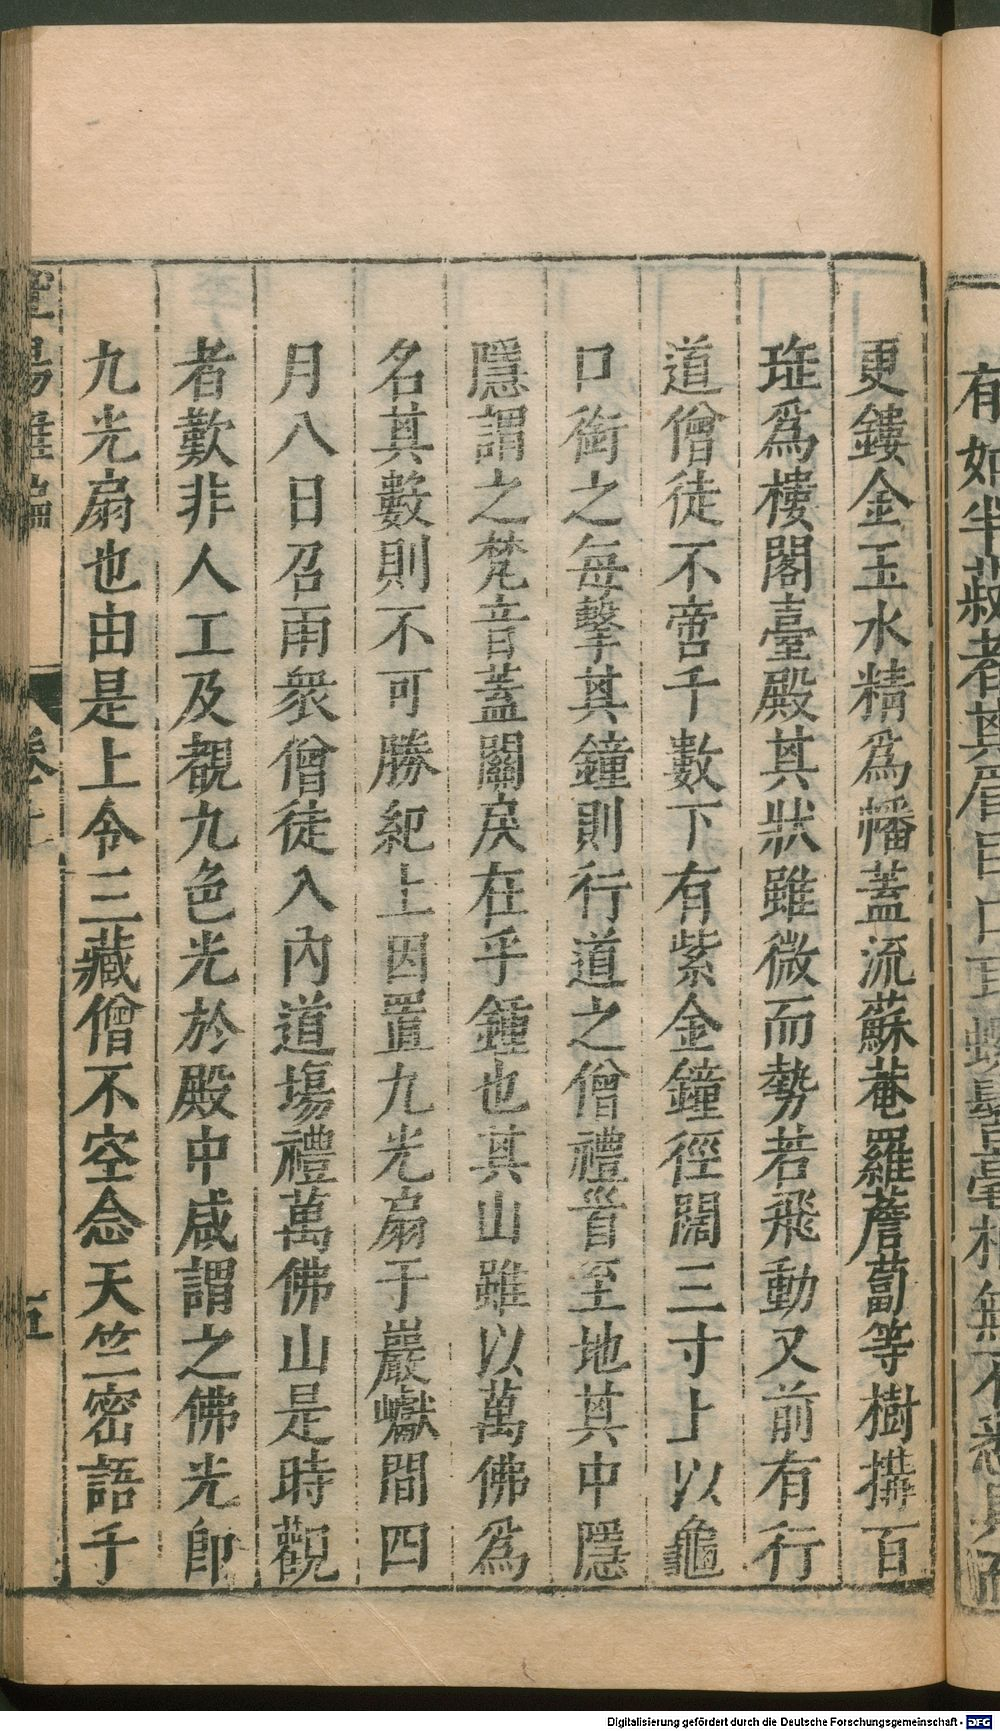 更鏤金玉水精爲幡蓋流蘇菴羅薝蔔等樹搆百
琟爲樓閣臺殿其狀雖微而勢若飛動又前有行
道僧徒不啻千數下有紫金鐘徑闊三寸上以龜
口銜之每擊其鐘則行道之僧禮首至地其中隱
隱謂之梵音蓋關戾在乎鍾也其山雖以萬佛爲
名其數則不可勝紀上因置九光扇于巖巘間四
月八日召兩衆僧徒入內道場禮萬佛山是時觀
者歎非人工及覩九色光於殿中咸謂之佛光卽
九光扇也由是上令三藏僧不空念天竺密語千
卷
五
Digitalisierung gefördert durch die Deutsche Forschungsgemeinschaft - DFG